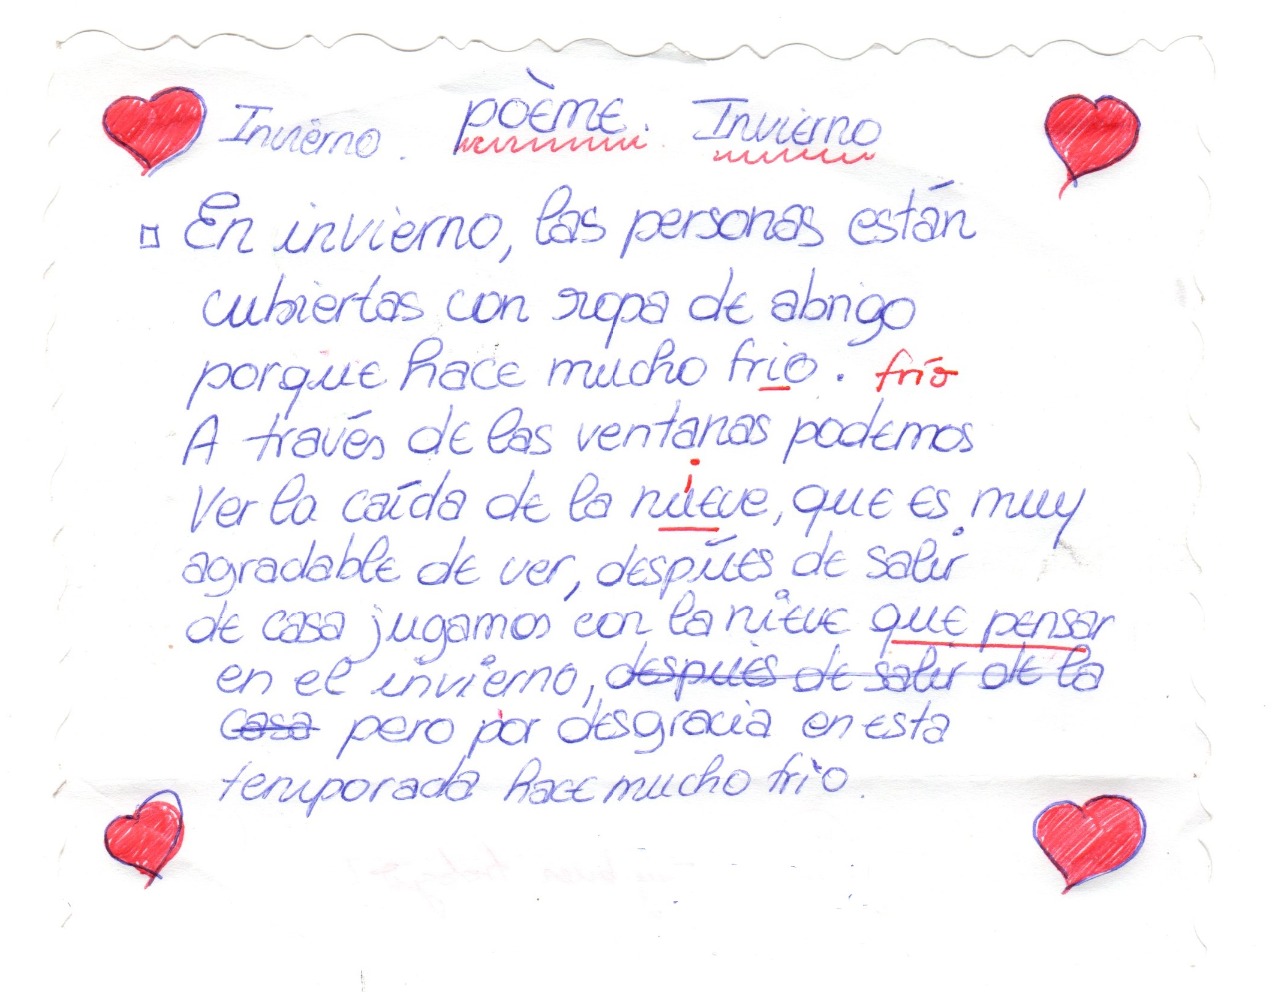 Invierno. poème. Invierno
En invierno, las personas están
cubiertas con ropa de abrigo
porque hace mucho frio. frío
A través de las ventanas podemos
Ver la caída de la nueve, que es muy
agradable de ver, despúes de salir
de casa jugamos con la nieve que pensar
en el invierno, despuès de salir de la
casa pero por desgracia en esta
temporada hace mucho frio.